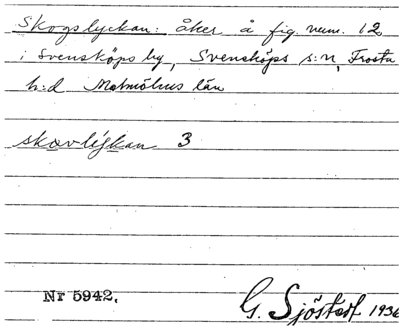 Skogslyckan: åker å fig. num. 12
i Svensköps by, Svensköps s:n, Frosta
h:d Malmöhus län
skovlýkan 3
Nr 5942.
G. Sjöstedt 1936